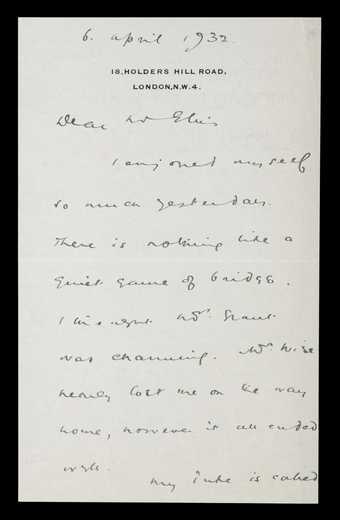 6. april 1932.
18, HOLDERS HILL ROAD,
LONDON, N.W.4.
Dear Mr Ellis
I enjoyed myself
so much yesterday.
There is nothing like a
quiet game of bridge.
I thought Mrs. Grant
was charming. Mrs Wise
nearly lost me on the way
home, however it all ended
well.
My tube is called